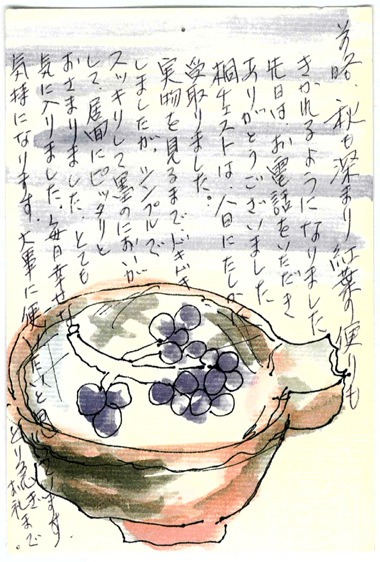 前略、秋も深まり紅葉の便りも
きかれるようになりました。
先日は、お電話をいただき
ありがとうございました。
桐生ストは、八日にたしか
受取りました。
実物を見るまで、ドキドキ
しましたが、シンプルで
スッキリして、墨のにおいが
して、居間にピッタリと
おさまりました。とても
気に入りました。毎日幸せ
気持になります。大事に使いたいと
とり急ぎ
お礼まで。